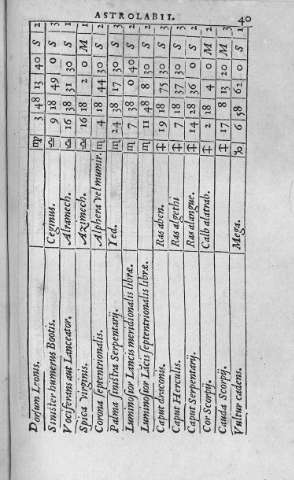 ASTROLABII. 40
Dorsum Leonis. ♍ 3 48 13 40 S 2
Sinister humerus Bootis. Ceginus. ♎ 9 18 49 0 S 3
Vociferans aut Lanceator. Alramech. ♎ 16 38 31 30 S 1
Spica Virginis. Azimech. ♎ 16 18 2 0 M 1
Corona septentrionalis. Alpheta vel mumir. ♏ 4 18 44 30 S 2
Palma sinistra Serpentarij. Yed. ♏ 24 38 17 30 S 3
Luminosior Lancis meridionalis libræ. ♏ 7 38 0 40 S 2
Luminosior Lācis septentrionalis libræ. ♏ 11 48 8 30 S 2
Caput draconis. Ras aben. ♐ 19 18 75 30 S 3
Caput Herculis. Ras algethi ♐ 7 18 37 30 S 3
Caput Serpentarij. Ras alangue. ♐ 14 28 36 0 S
Cor Scorpij. Calb alatrab. ♐ 2 18 4 0 M 2
Cauda Scorpij. ♐ 17 8 13 20 M
Vultur cadens. Mega. ♑ 6 58 62 0 S